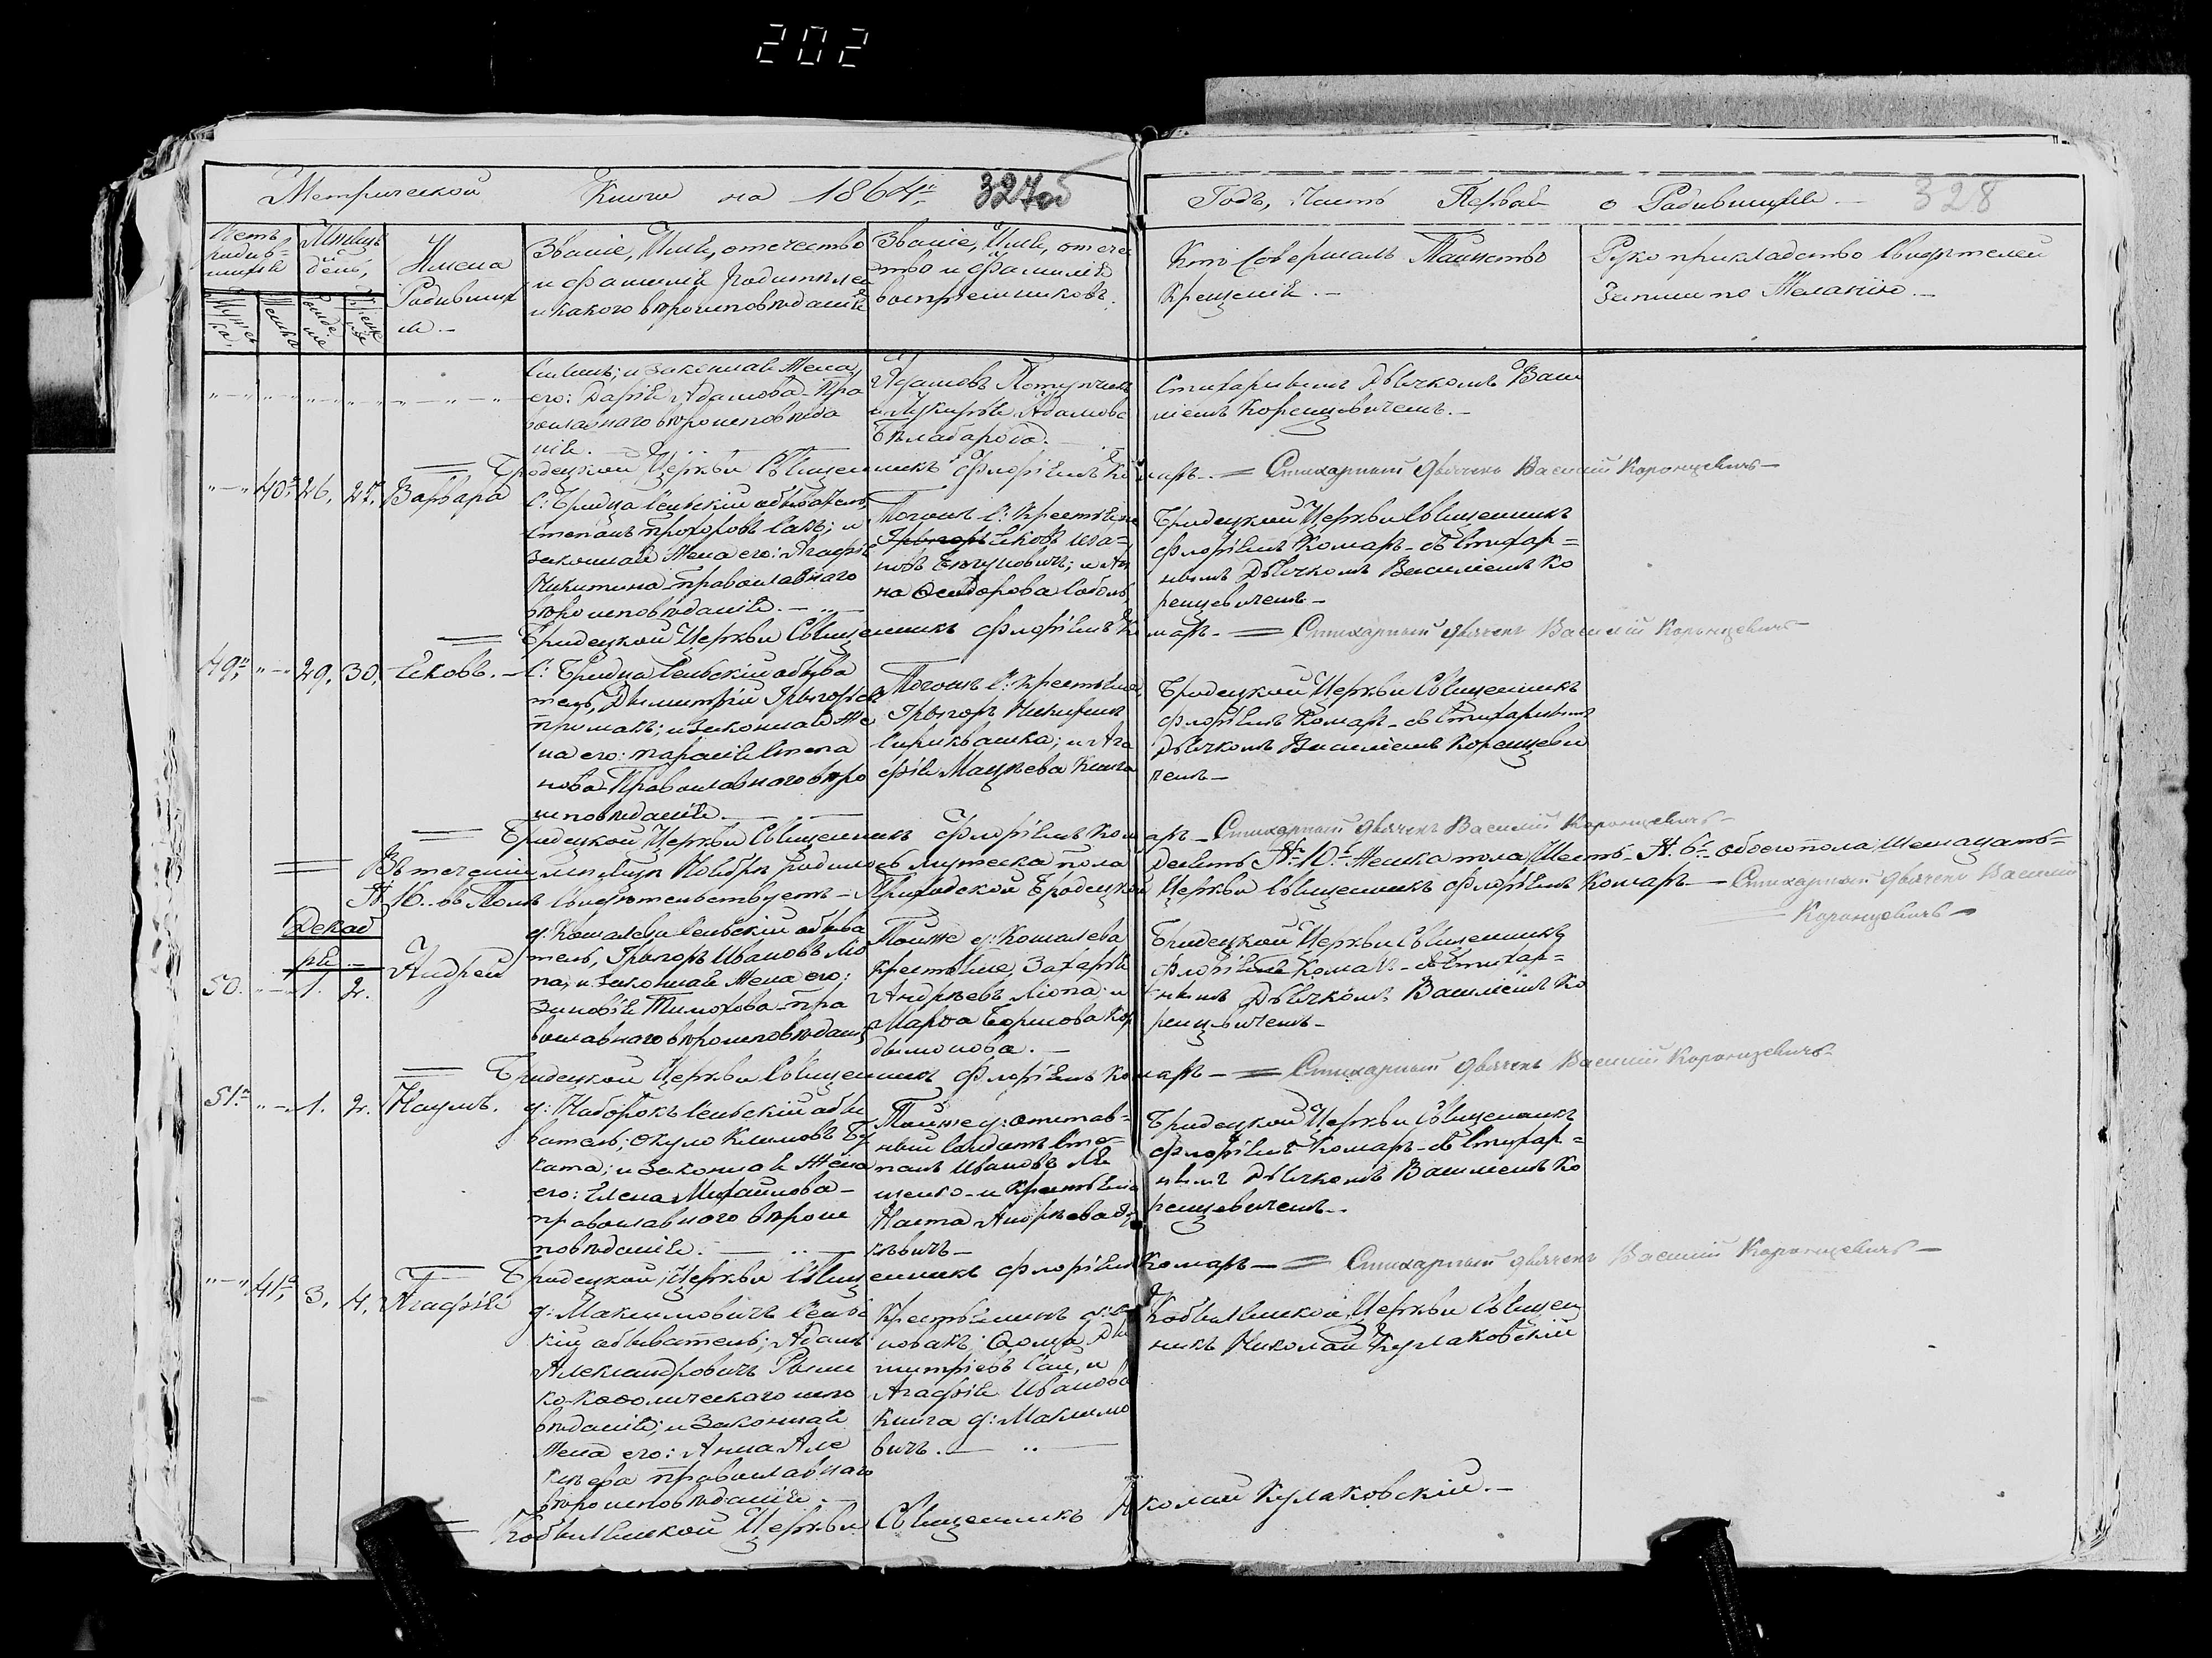 202
Метрической Книги на 1864й 327об
Годъ, Часть Первая о Родившихся. 328
Счетъ родившихся
Мѣсяцъ и день,
Имена Родившихся.
Званіе, Имя, отечество
и фамилія родителей
и какого вѣроисповѣданія
Званіе, Имя, отече
ство и фамилія
воспріемниковъ.
Кто Совершалъ Таинство
Крещенія.
Рукоприкладство Свидѣтелей
Записи по Желанію.
и законная Жена
его: Дарія Адамова Пра
вославнаго вѣроисповѣда
нія.
Адамовъ
и Лукирія Адамова
Стихарнымъ Дьячкомъ Васи
ліемъ Коренцевичемъ.
Бродецкой Церкви Священникъ Флоріянъ Комаръ. Стихарный дьячекъ Василій Коронцевичъ
40я 26. 27. Варвара
С: Бродца Сельскій обыватель,
Степанъ Прохоровъ Сахъ; и
законная Жена его: Агафія
Никитина православнаго
вѣроисповѣданія.
Тогожъ С: Крестьяне
Яковъ Ива=
новъ и Ан
на Осидорова Соболь,
Бродецкой Церкви Священникъ
Флоріянъ Комаръ съ Стихар=
нымъ Дьячкомъ Василіемъ Ко
ренцевичемъ
Бродецкой Церкви Священникъ Флоріянъ Комаръ. Стихарный дьячекъ Василій Коронцевичъ
49й 29. 30. Яковъ.
С: Бродца Сельскій обыва
тель, Дымитрій Григорьевъ
Примакъ; и законная Же
на его: Парасія Степа
нова Православнаго вѣро
исповѣданія.
Тогожъ С: Крестьяне,
Григоръ Никифоровъ
и Ага
фія Мацѣева Книга
Бродецкой Церкви Священникъ
Флоріянъ Комаръ съ Стихарнымъ
Дьячкомъ Василіемъ Коренцеви
чемъ
Бродецкой Церкви Священникъ Флоріянъ Комаръ Стихарный дьячекъ Василій Коронцевичъ
Въ теченіи мѣсяца Ноября родилось мужеска пола десять № 10. Женска пола Шесть № 6. обоего пола Шеснацать
№ 16. въ Томъ Свидѣтельствуетъ Приходской Бродецкой Церкви Священникъ Флоріянъ Комаръ Стихарный дьячекъ Василій
Коронцевичъ
Декабря
50. 1. 2. Андрей
д: Кошалева Сельскій обыва
тель, Григоръ Ивановъ Лю
па, и законная Жена его;
Зиновія Тимохова пра
вославнаго вѣроисповѣданія
Тойже д: Кошалева
крестьяне, Захарія
Андрѣевъ Люпа; и
Марѳа Борисова Ев
дымонова.
Бродецкой Церкви Священникъ
Флоріянъ Комаръ съ Стихар=
нымъ Дьячкомъ Василіемъ Ко
ренцевичемъ
Бродецкой Церкви Священникъ Флоріянъ Комаръ Стихарный дьячекъ Василій Коронцевичъ
51й 1. 2. Наумъ.
д: Наборокъ Сельскій обы
ватель; Окуло Климовъ Бу
ката; и законная Жена
его: Елена Михайлова
православнаго вѣроис
повѣданія.
Тойже д: отстав=
ный Солдатъ Сте=
панъ Ивановъ Ля
щенко и крестьянка
Наста Андрѣева
Бродецкой Церкви Священникъ
Флоріянъ Комаръ съ Стихар=
нымъ Дьячкомъ Василіемъ Ко
ренцевичемъ
Бродецкой Церкви Священникъ Флоріянъ Комаръ Стихарный дьячекъ Василій Коронцевичъ
41я 3. 4. Агафія
д: Максимовичъ Сельс
кій обыватель; Адамъ
Александровичъ Римс
ко-Католическаго испо
вѣданія; и законная
Жена его: Анна Але
ксѣева православнаго
вѣроисповѣданія.
Крестьянинъ
Ѳома Ды
митріевъ Сай, и
Агафія Иванова
Книга д: Максимо
вичъ.
Кобылянской Церкви Священ
никъ Николай Кулаковскій
Кобылянской Церкви Священникъ Николай Кулаковскій.